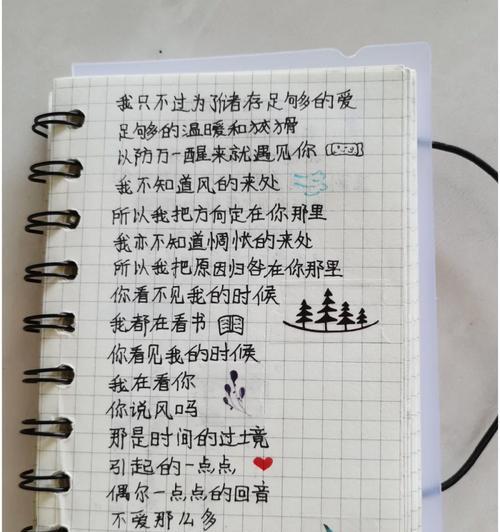 我只不过为了储存足够的爱
足够的温暖和狡猾
以防万一醒来就遇见你
我不知道风的来处
所以我把方向定在你那里
我亦不知道惆怅的来处
所以我把原因归咎在你那里
你看不见我的时候
我都在看书
你看见我的时候
我在看你
你说风吗
那是时间的过境
引起的一点点
偶尔一点点的回音
不爱那么多